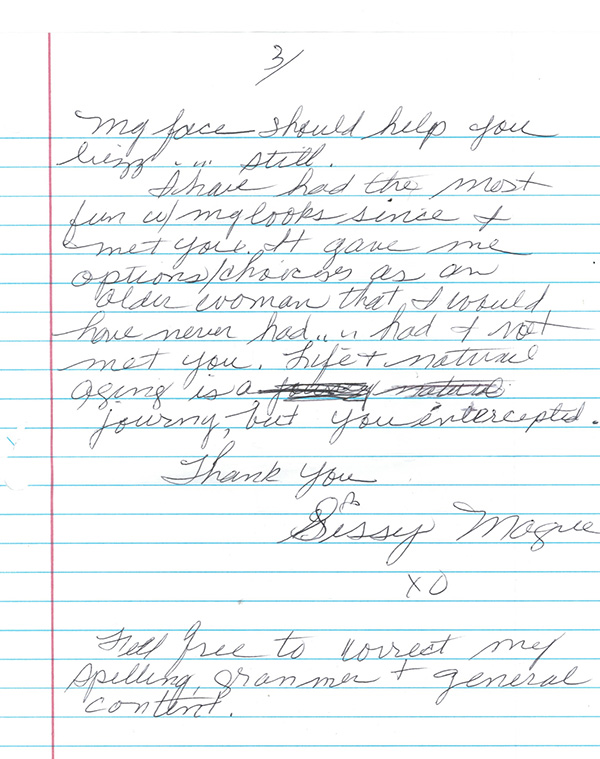 3/
My face should help you
bizz .... still.
I have had the most
fun w/ my looks since I
met you. It gave me
options/choices as an
older woman that I would
have never had .. .. had I not
met you. Life + natural
aging is a natural
journy, but you intercepted.
Thank you
Sissy Magee
XO
Fell free to correct my
spelling, granmer + general
content.